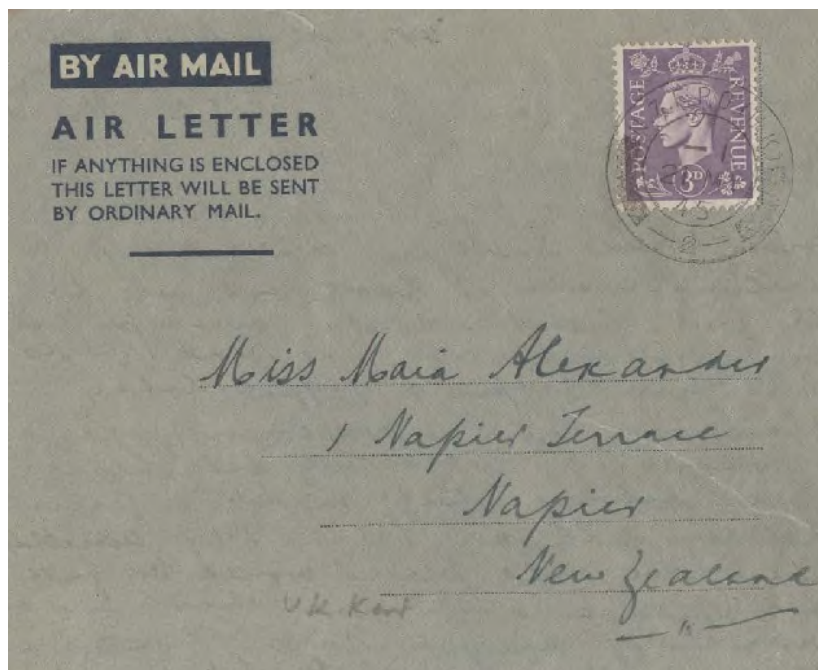 BY AIR MAIL
AIR LETTER
IF ANYTHING IS ENCLOSED
THIS LETTER WILL BE SENT
BY ORDINARY MAIL.
POSTAGE REVENUE
3D
45
2
Miss Maia Alexander
1 Napier Terrace
Napier
New Zealand
UK Kent